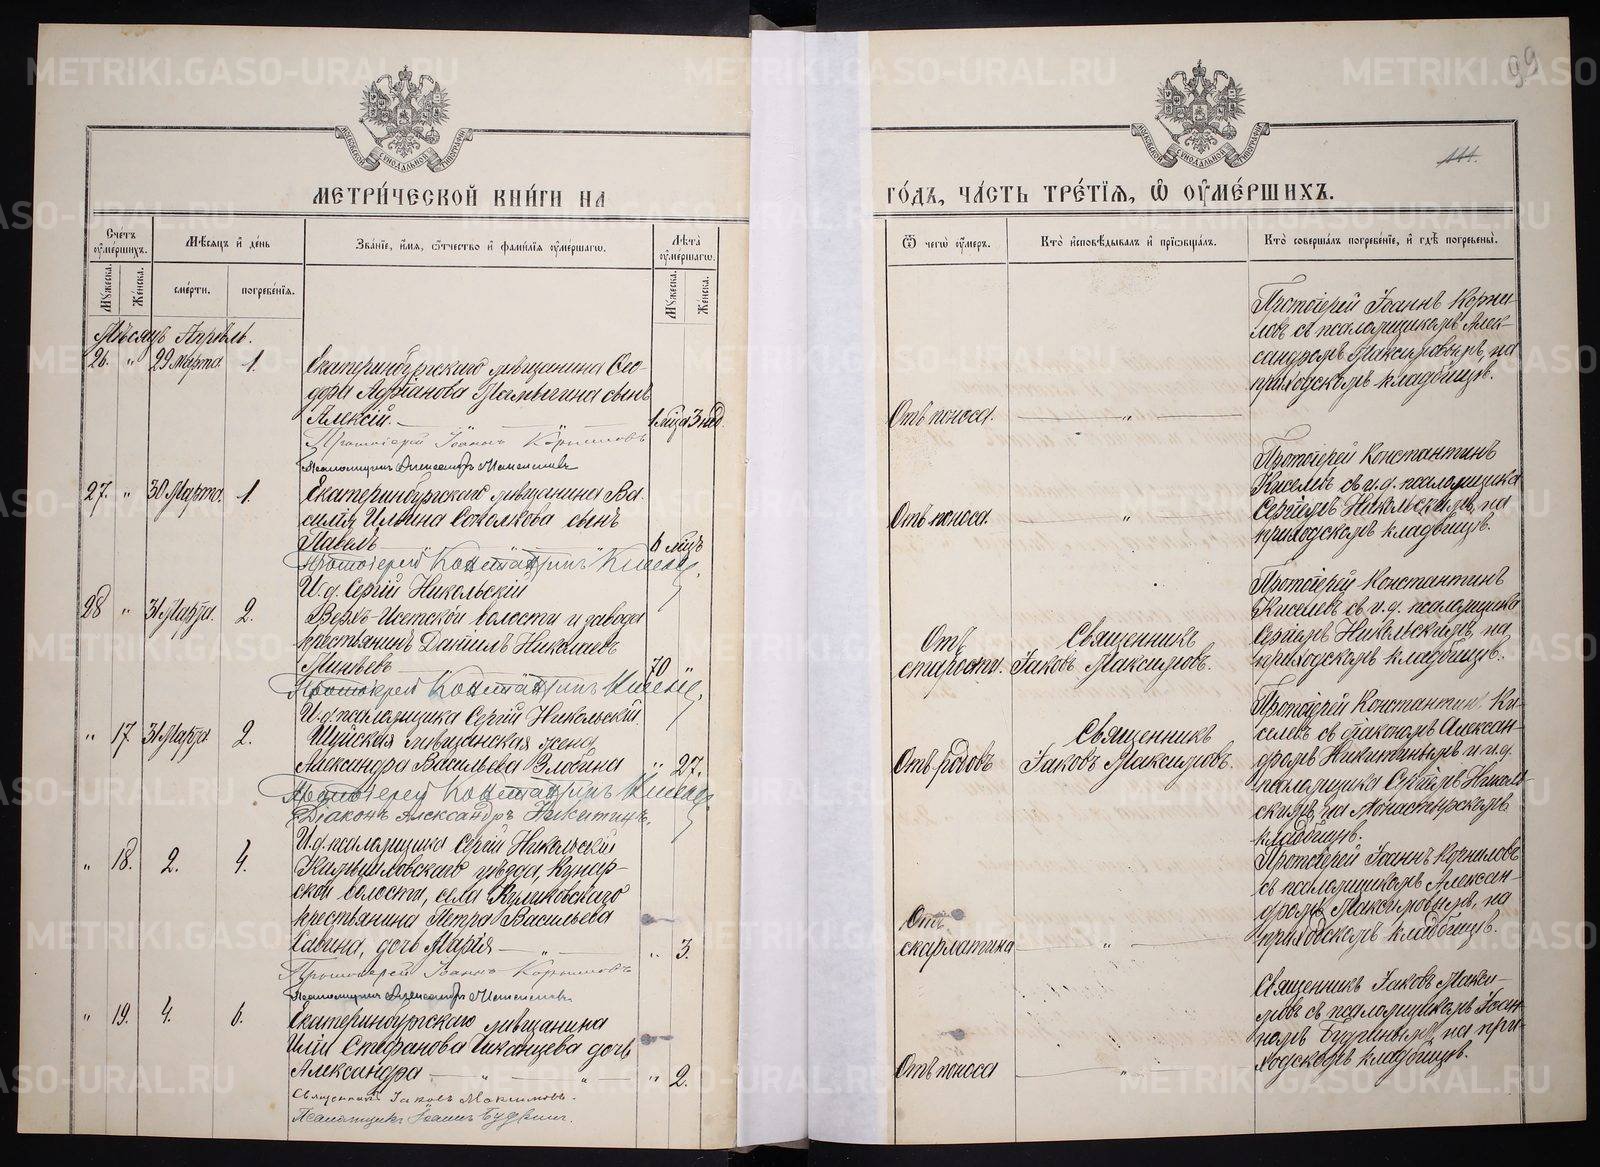 99
111.
МЕТРИ́ЧЕСКОЙ КНИ́ГИ НА
ГО́ДЪ, ЧА́СТЬ ТРЕ́ТІѦ, Ѡ҆ ОУ҆МЕ́РШИХЪ.
Сче́тъ оу҆ме́ршихъ.
Мѣ́сяцъ и҆ де́нь
Зва́нїе, и҆́мя, ѻ҆́тчество и҆ фами́лїя оу҆ме́ршагѡ.
Лѣ́та оу҆ме́ршагѡ.
Ѿ чегѡ̀ оу҆́меръ.
Кто̀ и҆сповѣ́дывалъ и҆ прїѡбща́лъ.
Кто̀ соверша́лъ погребе́нїе, и҆ гдѣ̀ погребены̀.
Мꙋ́жеска.
Же́нска.
сме́рти.
погребе́нїя.
Мꙋ́жеска.
Же́нска.
Мѣсяцъ Апрѣль.
26. " 29 Марта. 1.
Екатеринбургскаго мѣщанина Ѳео-
дора Адріанова сынъ
Алексій. 1 мца 3 нед
Протоіерей Іоаннъ Корниловъ
Псаломщикъ Александръ Максимовъ
Отъ поноса. "
Протоіерей Іоаннъ Корни-
ловъ съ псаломщикомъ Алек-
сандромъ Максимовымъ, на
приходскомъ кладбищѣ.
27. " 30 Марта. 1.
Екатеринбургскаго мѣщанина Ва-
силія Ильина Соколкова сынъ
Павелъ 6 мцъ
Протоіерей Константинъ Киселев
И.д. Сергій Никольскій
Отъ поноса. "
Протоіерей Константинъ
Киселевъ съ и.д. псаломщика
Сергіемъ Никольскимъ, на
приходскомъ кладбищѣ.
28 " 31 Марта. 2.
Верхъ-Исетской волости и завода
крестьянинъ Даніилъ Николаевъ
70 "
Протоіерей Константинъ Киселев
И.д. псаломщика Сергій Никольскій
Отъ
старости.
Священникъ
Іаковъ Максимовъ.
Протоіерей Константинъ
Киселевъ съ и.д. псаломщика
Сергіемъ Никольскимъ, на
приходскомъ кладбищѣ.
" 17 31 Марта 2.
Шуйская мѣщанская жена
Александра Васильева Злобина " 27.
Протоіерей Константинъ Киселев
Діаконъ Александръ Никитинъ.
И.д. псаломщика Сергій Никольскій
Отъ родовъ
Священникъ
Іаковъ Максимовъ.
Протоіерей Константинъ Ки-
селевъ съ діакономъ Алексан-
дромъ Никитинымъ и и.д.
псаломщика Сергіемъ Николь-
скимъ, на Монастырскомъ
кладбищѣ.
" 18. 2. 4.
Камышловскаго уѣзда, Кунар-
ской волости, села Куликовскаго
крестьянина Петра Васильева
Савина, дочь Марія " " 3.
Протоіерей Іоаннъ Корниловъ
Псаломщикъ Александръ Максимовъ
Отъ
скарлатина "
Протоіерей Іоаннъ Корниловъ
съ псаломщикомъ Алексан-
дромъ Максимовымъ, на
приходскомъ кладбищѣ.
" 19. 4. 6.
Екатеринбургскаго мѣщанина
Иліи Стефанова Чиканцева дочь
Александра " " " 2.
Священникъ Іаковъ Максимовъ.
Псаломщикъ Іоаннъ Будринъ.
Отъ поноса "
Священникъ Іаковъ Макси-
мовъ съ псаломщикомъ Іоан-
номъ Будринымъ, на при-
ходскомъ кладбищѣ.
METRIKI.GASO-URAL.RU